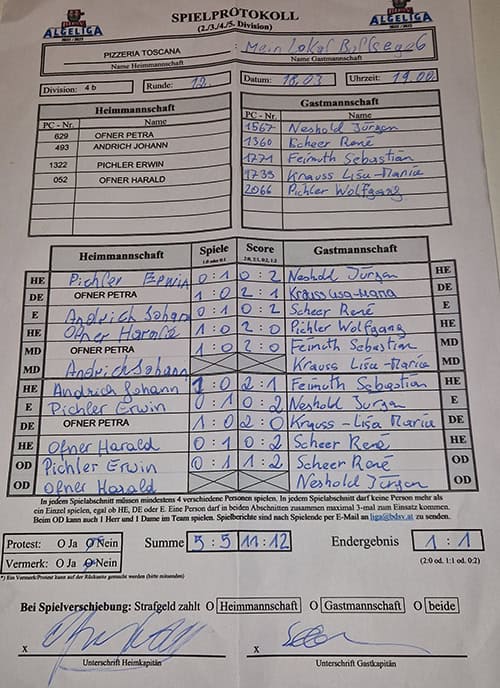 ALGELIGA SPIELPROTOKOLL ALGELIGA
(2./3./4./5. Division)
PIZZERIA TOSCANA : Mein Lokal
Name Heimmannschaft Name Gastmannschaft
Division: 4 b Runde: 12. Datum: 18.03 Uhrzeit: 19.00
Heimmannschaft Gastmannschaft
PC - Nr. Name PC - Nr. Name
629 OFNER PETRA 1567 Neshold Jürgen
493 ANDRICH JOHANN 1360 Scheer René
1322 PICHLER ERWIN 1771 Feimuth Sebastian
052 OFNER HARALD 1739 Krauss Lisa-Maria
2066 Pichler Wolfgang
Heimmannschaft Spiele Score Gastmannschaft
1:0 oder 0:1 2:0, 2:1, 0:2, 1:2
HE Pichler Erwin 0:1 0:2 Neshold Jürgen HE
DE OFNER PETRA 1:0 2:1 Krauss Lisa-Maria DE
E Andrich Johann 0:1 0:2 Scheer René E
HE Ofner Harald 1:0 2:0 Pichler Wolfgang HE
MD OFNER PETRA 1:0 2:0 Feimuth Sebastian MD
MD Andrich Johann Krauss Lisa-Maria MD
HE Andrich Johann 1:0 2:1 Feimuth Sebastian HE
E Pichler Erwin 0:1 0:2 Neshold Jürgen E
DE OFNER PETRA 1:0 2:0 Krauss-Lisa Maria DE
HE Ofner Harald 0:1 0:2 Scheer René HE
OD Pichler Erwin 0:1 1:2 Scheer René OD
OD Ofner Harald Neshold Jürgen OD
In jedem Spielabschnitt müssen mindestens 4 verschiedene Personen spielen. In jedem Spielabschnitt darf keine Person mehr als
ein Einzel spielen, egal ob HE, DE oder E. Eine Person darf in beiden Abschnitten zusammen maximal 3-mal zum Einsatz kommen.
Beim OD kann auch 1 Herr und 1 Dame im Team spielen. Spielberichte sind nach Spielende per E-Mail an liga@bdsv.at zu senden.
Protest: O Ja O Nein Summe 5:5 11:12 Endergebnis 1:1
Vermerk: O Ja O Nein (2:0 od. 1:1 od. 0:2)
*) Ein Vermerk/Protest kann auf der Rückseite gemacht werden (bitte mitsenden)
Bei Spielverschiebung: Strafgeld zahlt O Heimmannschaft O Gastmannschaft O beide
x x
Unterschrift Heimkapitän Unterschrift Gastkapitän